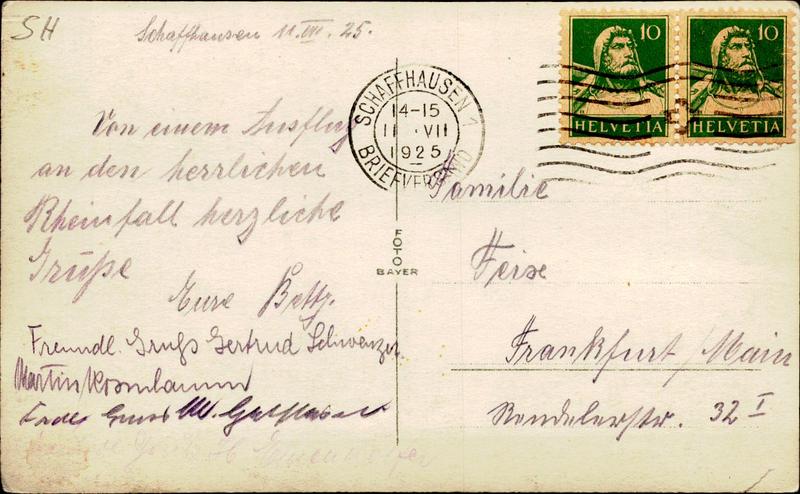 SH
Schaffhausen 11. VII. 25.
10 10
HELVETIA HELVETIA
SCHAFFHAUSEN 1
14-15
11 . VII
1925
BRIEFVERSAND
Von einem Ausflug
an den herrlichen
Rheinfall herzliche
Grüße
Eure Betty.
Freundl. Gruß Gertrud Schwenzer
Martin
FOTO
BAYER
Familie
Feise
Frankfurt/Main
32 I